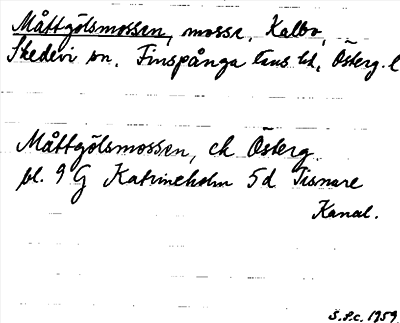 Måttgölsmossen, mosse, Kalbo,
Skedevi sn. Finspånga läns hd, Österg. l
Måttgölsmossen, ek Österg.
bl. 9 G Katrineholm 5d Tisnare
Kanal.
S.P.C. 1959